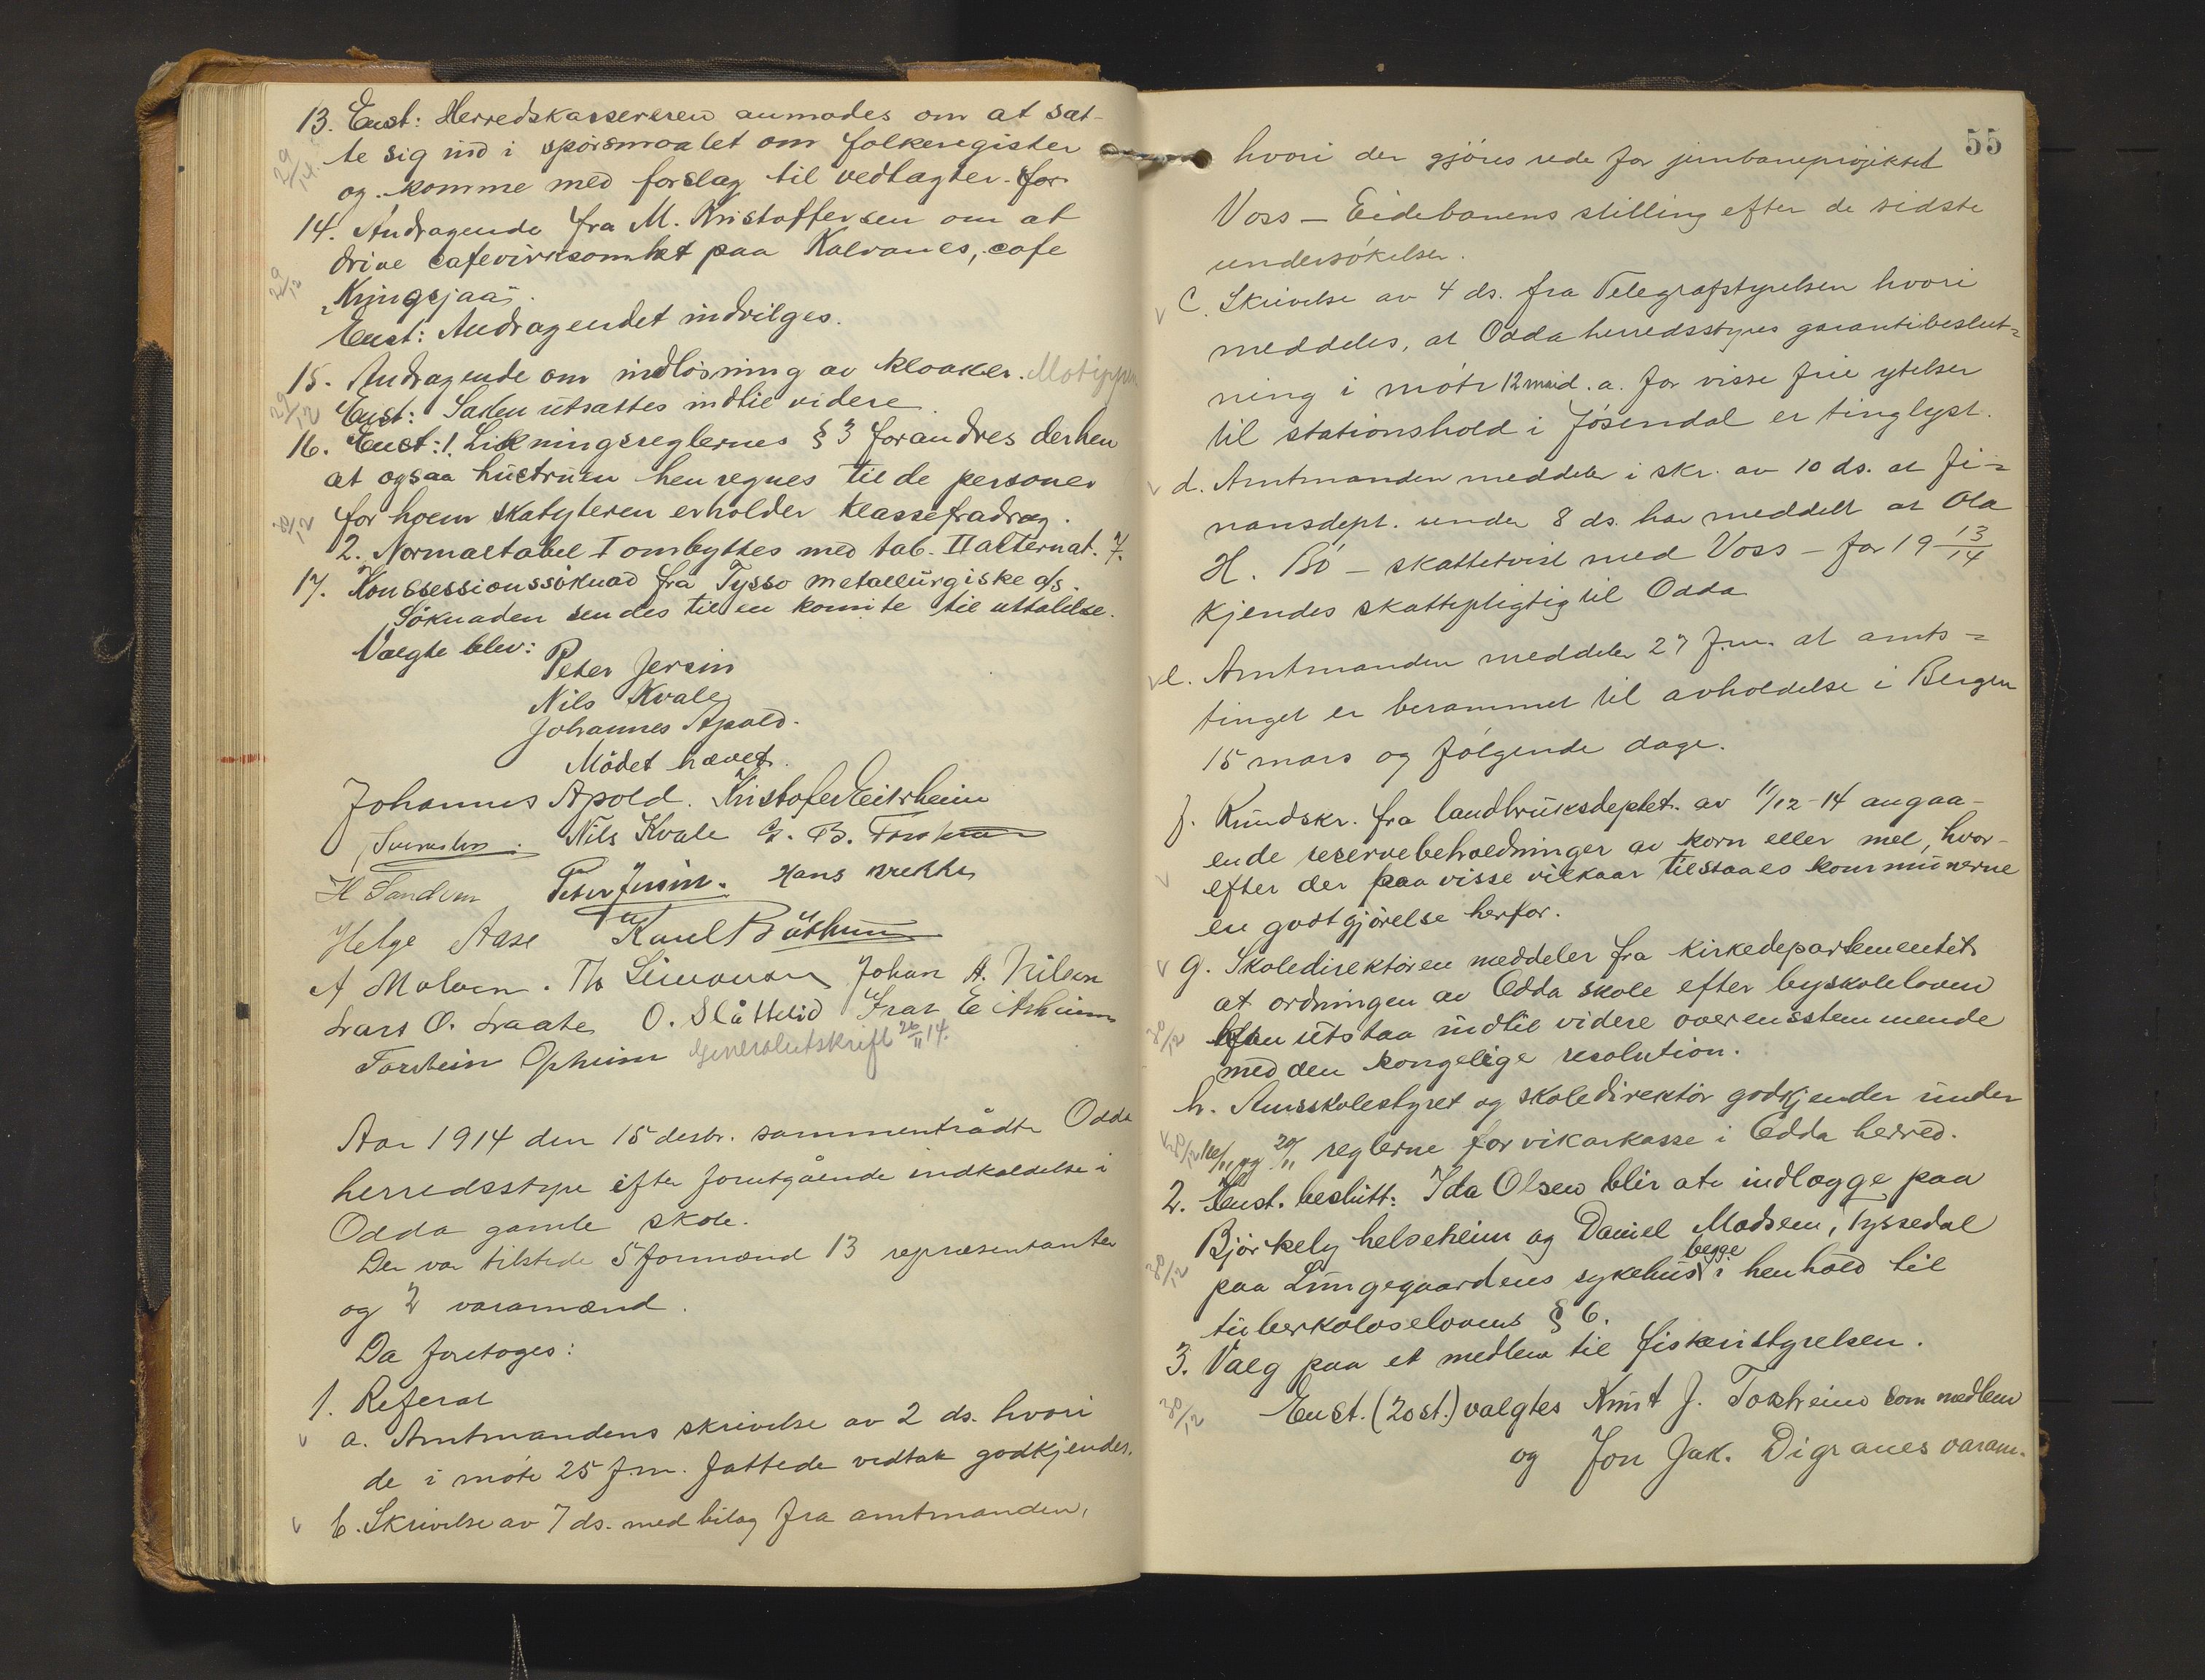 13. Enst: Herredskassereren anmodes om at sæt-
te sig ind i spörsmaalet om folkeregister
29/12 14.
og komme med forslag til vedtægter for
14. Andragende fra M. Kristoffersen om at
drive cafevirksomhet paa Kalvanes, cafe
29/12
„Kringsjaa".
Enst: Andragendet indvilges.
15. Andragende om indlösning av kloaker.
29/12
Enst: Saken utsættes indtil videre.
16. Enst: 1. Likningsreglernes § 3 forandres derhen
at ogsaa hustruen henregnes til de personer
30/12
for hvem skatyteren erholder klassefradrag.
2. Normaltabel I ombyttes med tab. II alternat. 7.
17. Konsessionssöknad fra Tysso metallurgiske a/s.
Söknaden sendes til en komite til uttalelse.
Valgte blev:
Peter Jersin
Nils Kvale
Johannes Apold.
Mödet hævet.
Johannes Apold. Kristofer Eitrheim
Nils Kvale G. B.
H Sandven Peter Jersin. Hans
Helge Aase Karl
A Molven. Th Simonsen Johan A. Nilsen
Lars O. Laate O. Slåttelid Ivar Eitrheim
Torstein Opheim Generalutskrift 26/11 14.
Aar 1914 den 15 desbr. sammentrådte Odda
herredsstyre efter forutgående indkaldelse i
Odda gamle skole.
Der var tilstede 5 formænd 13 repræsentanter
og 2 varamænd.
Da foretoges:
1. Referat
a. Amtmandens skrivelse av 2 ds. hvori
de i möte 25 f.m. fattede vedtak godkjendes.
b. Skrivelse av 7 ds. med bilag fra amtmanden,
55
hvori der gjöres rede for jernbaneprojektet
Voss - Eidebanens stilling efter de sidste
undersökelser.
C. Skrivelse av 4 ds. fra Telegrafstyrelsen hvori
meddeles, at Odda herredsstyres garantibeslut=
ning i möte 12 mai d. a. for visse frie ytelser
til stationshold i Jösendal er tinglyst.
d. Amtmanden meddeler i skr. av 10 ds. at Fi=
nansdept. under 8 ds. har meddelt at Ola
H. Bö - skattetvist med Voss - for 19 13/14
kjendes skattepligtig til Odda
e. Amtmanden meddeler 27 f.m. at amts=
tinget er berammet til avholdelse i Bergen
15 mars og fölgende dage.
f. Rundskr. fra landbruksdeptet. av 11/12-14 angaa-
ende reservebeholdninger av korn eller mel, hvor-
efter der paa visse vilkaar tilstaaes kommunerne
en godtgjörelse herfor.
g. Skoledirektören meddeler fra kirkedepartementet
at ordningen av Odda skole efter byskoleloven
30/12
kan utstaa indtil videre overensstemmende
med den kongelige resolution.
h. Amsskolestyret og skoledirektör godkjender under
30/12 16/11 og 20/11 reglerne for vikarkasse i Odda herred.
2. Enst. beslutt: Ida Olsen blir at indlægge paa
Björkely helseheim og Daniel Madsen, Tyssedal
30/12
paa Lungegaardens sykehus begge i henhold til
tuberkuloselovens § 6.
3. Valg paa et medlem til fiskeristyrelsen.
30/12
Enst. (20 st.) valgtes Knut J. Tokheim som medlem
og Jon Jak. Digranes varam.